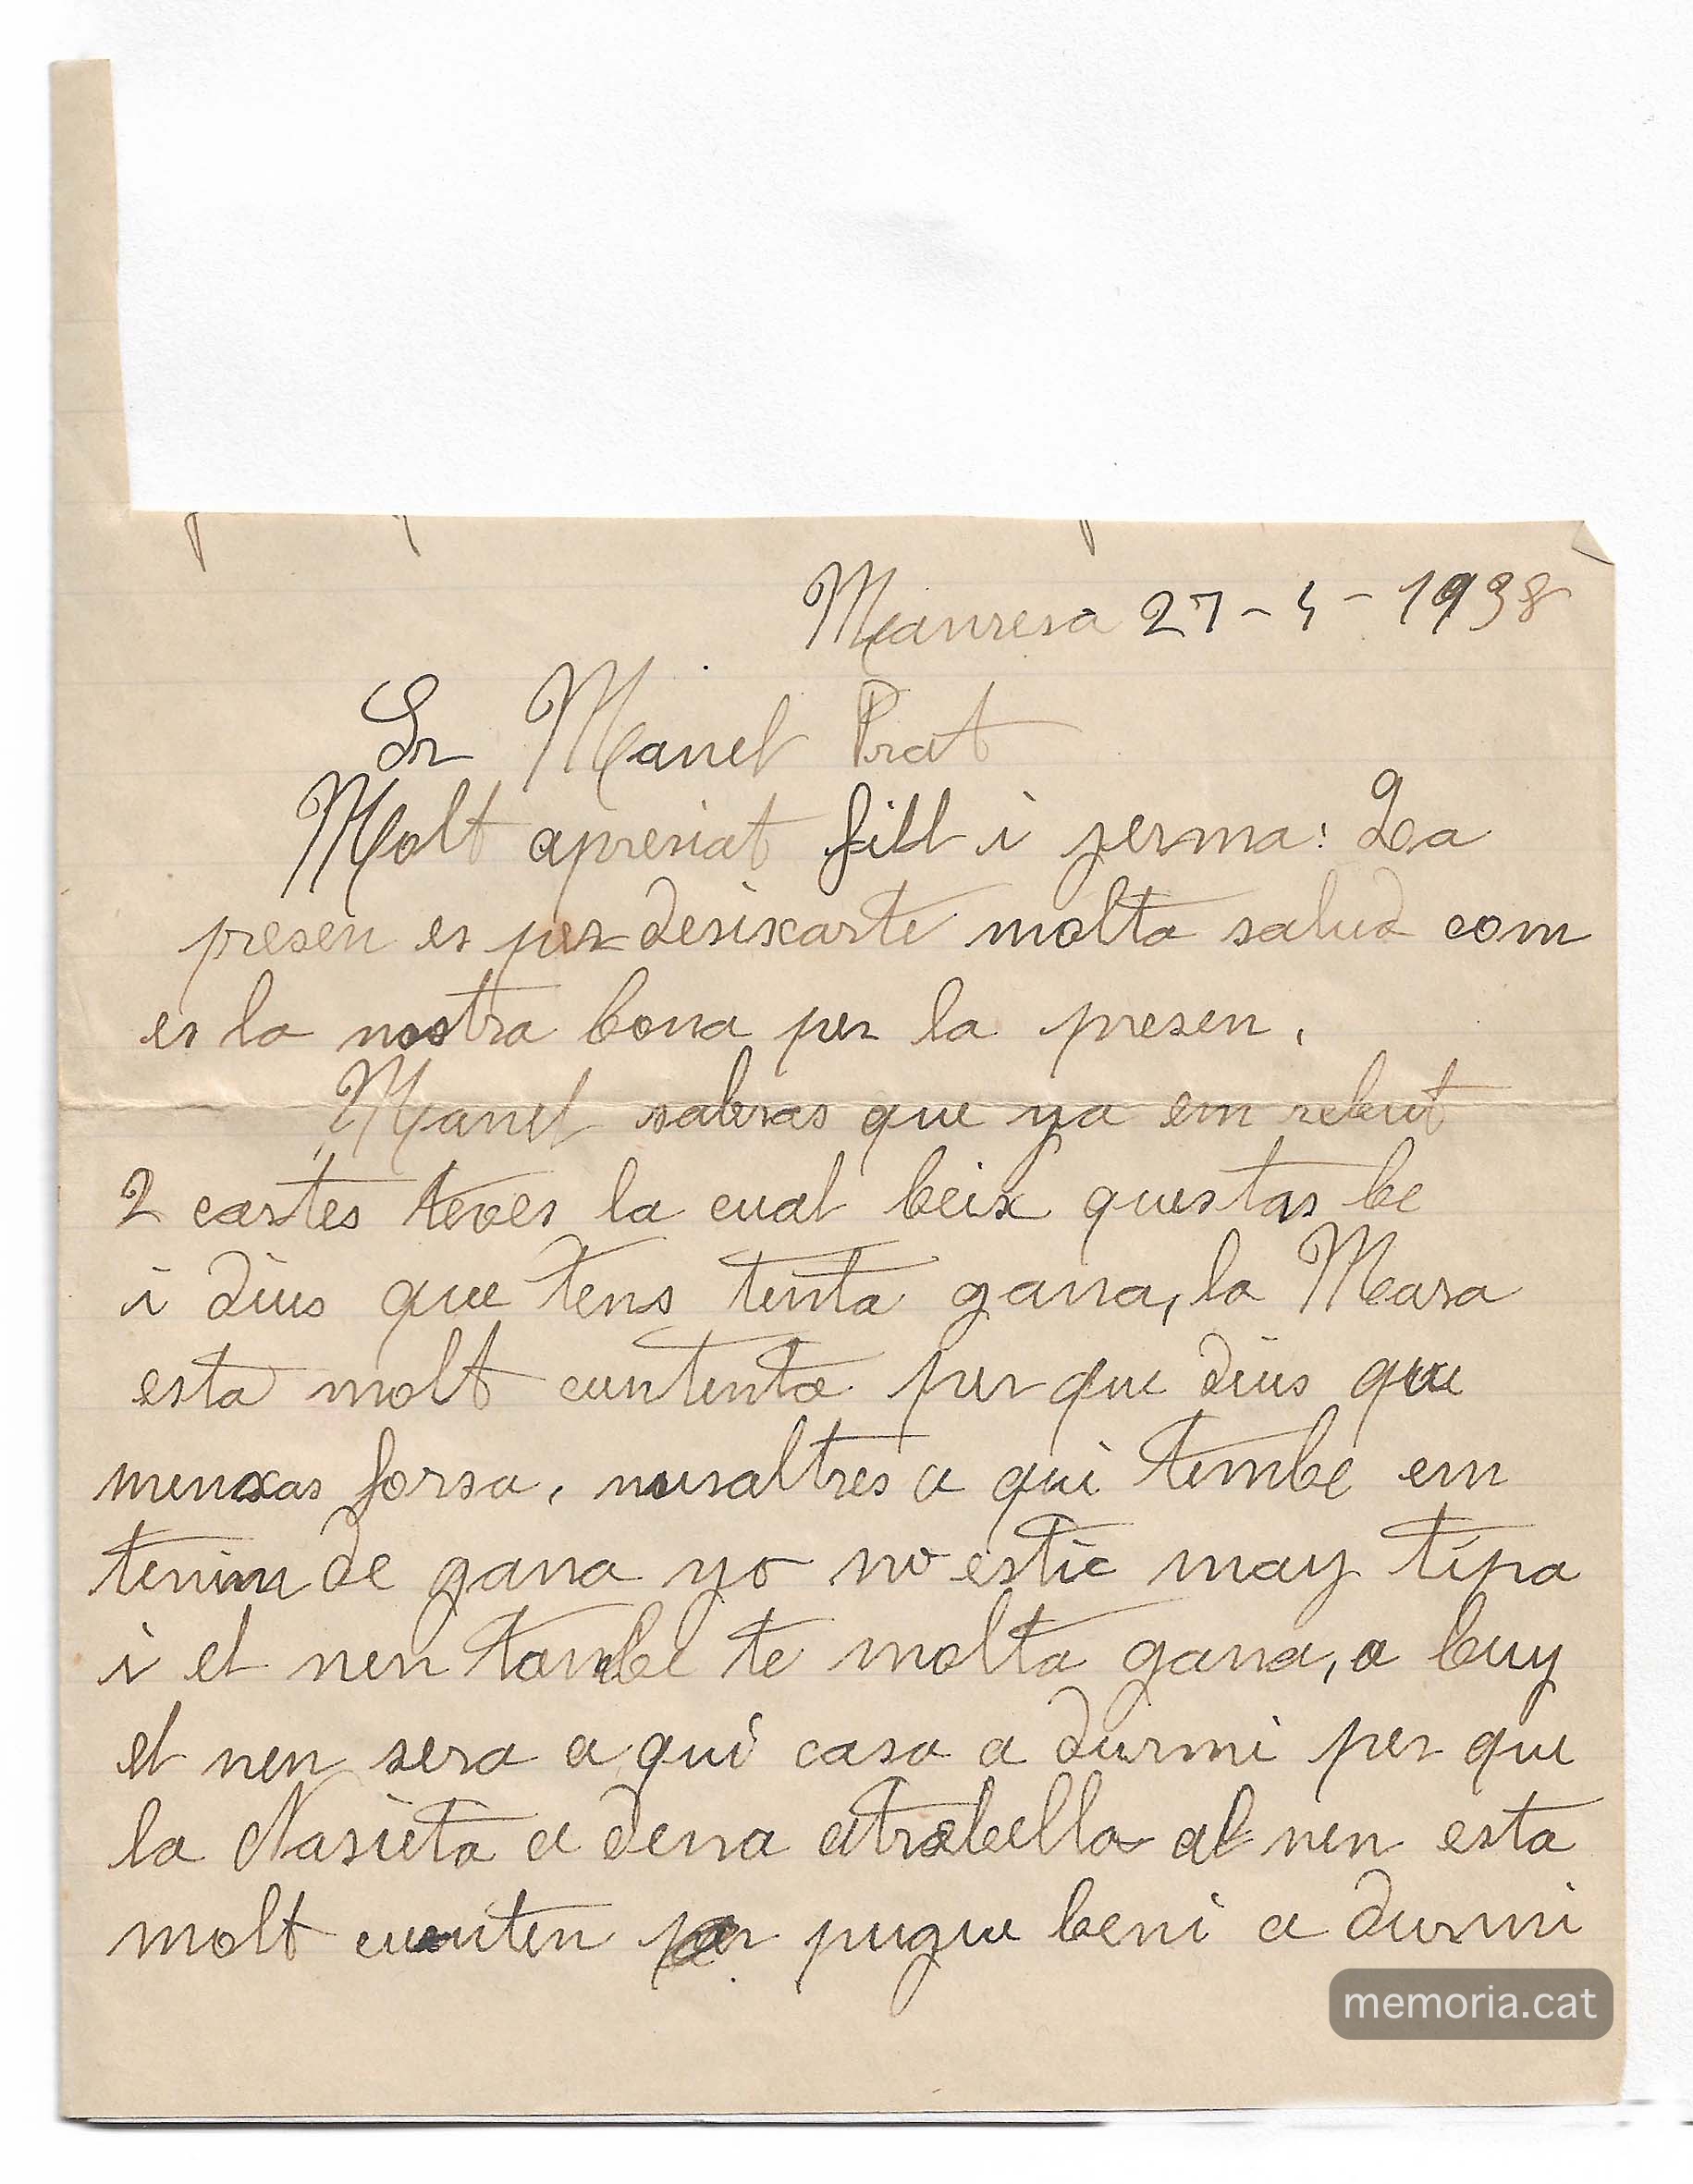 Manresa 27-4-1938
Sr Manel Prat
Molt apresiat fill i jerma: La
presen es per desixarte molta salud com
es la nostra bona per la presen.
Manel sabras que ya em rebut
2 cartes teves la cual beix questas be
i dius que tens tenta gana, la Mara
esta molt cuntenta per que dius que
menxas forsa, nusaltres a qui tembe em
tenim de gana yo no estic may tipa
i el nen tambe te molta gana, a buy
el nen sera a qui casa a durmi per que
la Nasieta a dena atrabella al nen esta
molt cunten per pugue beni a durmi
memoria.cat